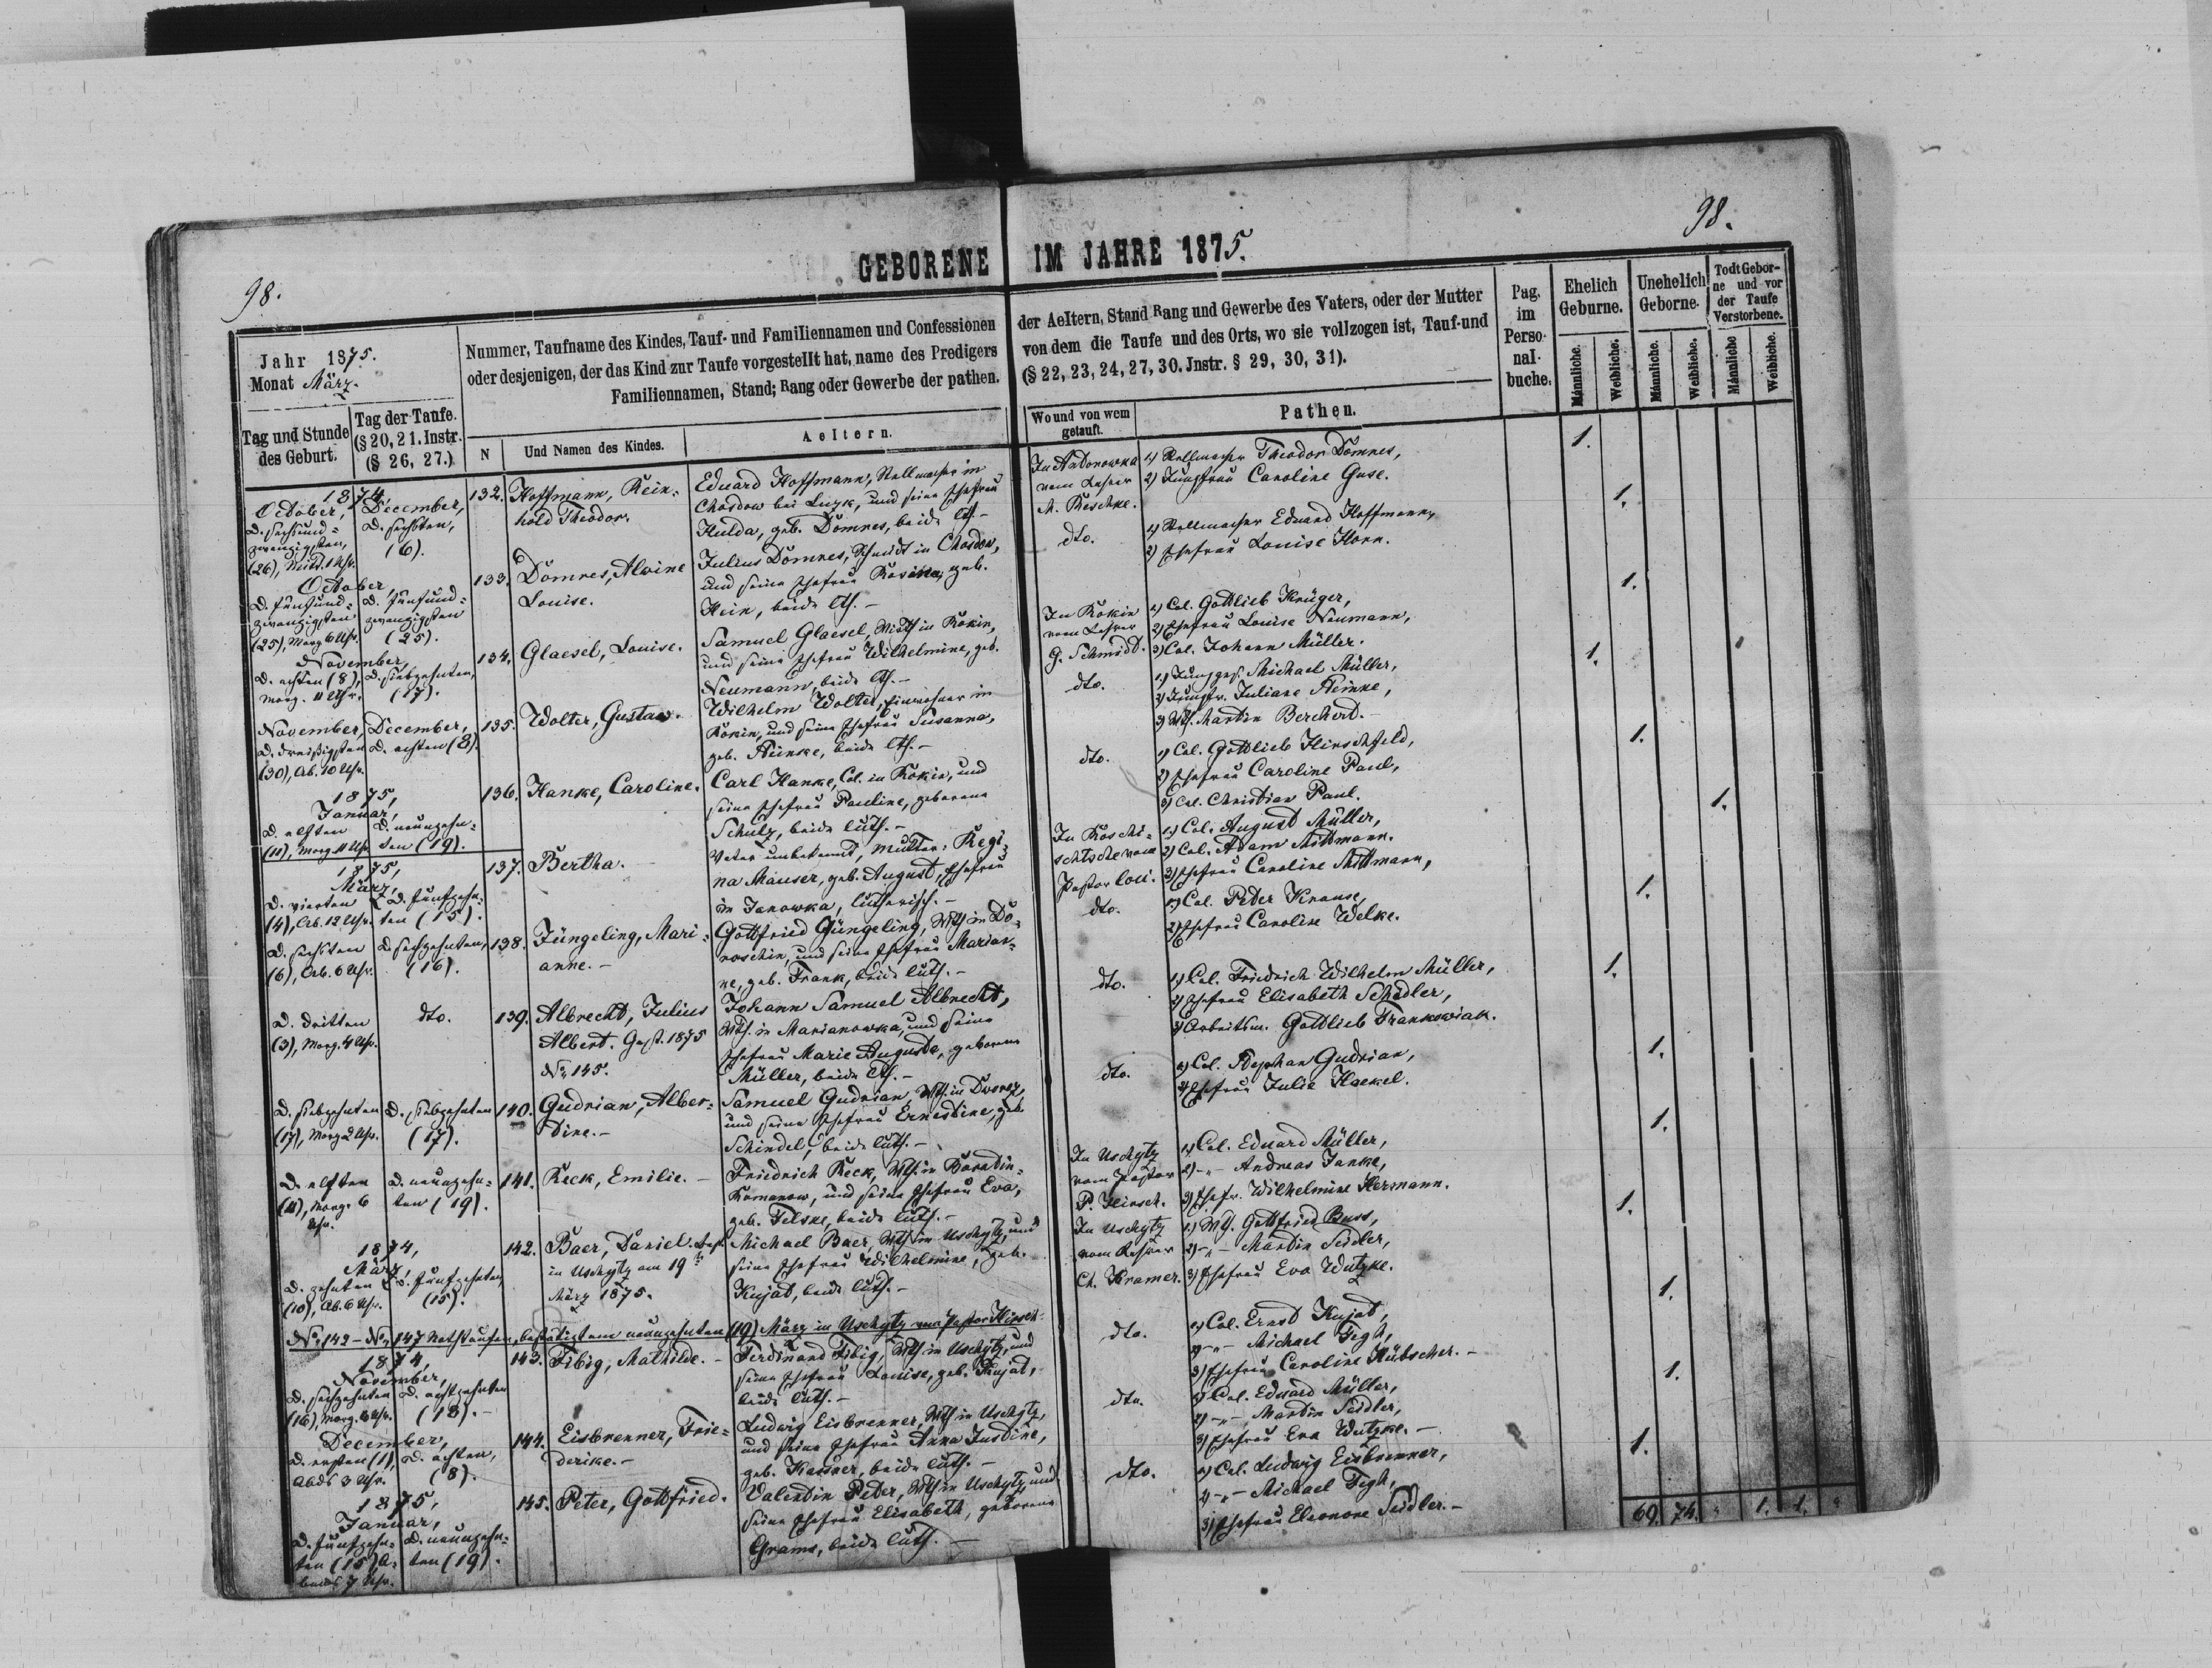 98.
98.
GEBORENE IM JAHRE 1875.
Jahr 1875.
Monat März.
Tag und Stunde des Geburt.
Tag der Taufe.
(§ 20, 21. Instr.
(§ 26, 27.)
Nummer, Taufname des Kindes, Tauf- und Familiennamen und Confessionen
oder desjenigen, der das Kind zur Taufe vorgestellt hat, name des Predigers
Familiennamen, Stand; Rang oder Gewerbe der pathen.
N
Und Namen des Kindes.
Aeltern.
der Aeltern, Stand Rang und Gewerbe des Vaters, oder der Mutter
von dem die Taufe und des Orts, wo sie vollzogen ist, Tauf-und
(§ 22, 23, 24, 27, 30. Jnstr. § 29, 30, 31).
Wo und von wem
getauft.
Pathen.
Pag.
im
Perso-
nal-
buche.
Ehelich
Geburne.
Unehelich
Geborne.
Todt Gebor-
ne und vor
der Taufe
Verstorbene.
Männliche.
Weibliche.
Männliche.
Weibliche.
Männliche
Weibliche.
1874,
October,
D. sechsund-
zwanzigsten,
(26), Mitt. 1 Uhr.
December,
D. sechsten,
(6).
132.
Hoffmann, Rein-
hold Theodor.
Eduard Hoffmann, Stellmacher in
Chosdow bei Luzk, und seine Ehefrau
Hulda, geb. Domnes, beide lth.-
In Antonowka
vom Lehrer
A. Reschke.
1) Stellmacher Theodor Domnes,
2) Jungfrau Caroline Guse.
1.
October,
D. fünfund-
zwanzigsten
(25), Morg. 6 Uhr.
D. fünfund-
zwanzigsten
(25).
133.
Domnes, Alwine
Louise.
Julius Domnes, Schmidt in Chosdow,
und seine Ehefrau Rosine, geb.
Hein, beide lth.-
dto.
1) Stellmacher Eduard Hoffmann,
2) Ehefrau Louise Horn.
1.
November,
D. achten (8),
Morg. 11 Uhr.
D. siebzehnten,
(17).
134.
Glaesel, Louise.
Samuel Glaesel, Wirth in Rokin,
und seine Ehefrau Wilhelmine, geb.
Neumann, beide lth.-
In Rokin
vom Lehrer
G. Schmidt.
1) Col. Gottlieb Krüger,
2) Ehefrau Louise Neumann,
3) Col. Johann Müller.
1.
November,
D. dreißigsten
(30), Ab. 10 Uhr.
December,
D. achten (8).
135.
Wolter, Gustav.
Wilhelm Wolter, Einwohner in
Rokin, und seine Ehefrau Susanna,
geb. Steinke, beide lth.-
dto.
1) Jungges. Michael Müller,
2) Jungfr. Juliane Steinke,
3) Wth. Martin Berchert.-
1.
1875,
Januar,
D. elften
(11), Morg. 11 Uhr.
D. neunzehn-
ten (19).
136.
Hanke, Caroline.
Carl Hanke, Col. in Rokin, und
seine Ehefrau Pauline, geborene
Schulz, beide luth.-
dto.
1) Col. Gottlieb Hirschfeld,
2) Ehefrau Caroline Paul,
3) Col. Christian Paul.
1.
1875,
März,
D. vierten
(4), Ab. 12 Uhr.
D. fünfzehn-
ten (15).
137.
Bertha.
Vater unbekannt, Mutter: Regi-
na Mauser, geb. August, Ehefrau
in Janowka, lutherisch.-
In Roschi-
schtsche vom
Pastor Loci.
1) Col. August Müller,
2) Col. Adam Mittmann.
3) Ehefrau Caroline Mittmann,
1.
D. sechsten
(6), Ab. 6 Uhr.
D. sechzehnten,
(16).
138.
Jüngeling, Mari-
anne.-
Gottfried Jüngeling, Wth in Do-
roschin, und seine Ehefrau Marian-
ne, geb. Frank, beide luth.-
dto.
1) Col. Peter Krause,
2) Ehefrau Caroline Welke.
1.
D. dritten
(3), Morg. 4 Uhr.
dto.
139.
Albrecht, Julius
Albert. Gest. 1875
No. 145.
Johann Samuel Albrecht,
Wth. in Marianowka, und seine
Ehefrau Marie Auguste, geborene
Müller, beide lth.-
dto.
1) Col. Friedrich Wilhelm Müller,
2) Ehefrau Elisabeth Schedler,
3) Arbeitsm. Gottlieb Frankowiak.
1.
D. siebzehnten
(17), Morg. 2 Uhr.
D. siebzehnten
(17).
140.
Gudrian, Alber-
tine.-
Samuel Gudrian, Wth. in Dworez,
und seine Ehefrau Ernestine, geb.
Schindel, beide luth.-
dto.
1) Col. Stephan Gudrian,
2) Ehefrau Julie Haekel.
1.
D. elften
(11), Morg. 6
Uhr.
D. neunzehn-
ten (19).
141.
Reck, Emilie.-
Friedrich Reck, Wth. in
Romanow, und seine Ehefrau Eva,
geb. Felske, beide luth.-
In Uschytz
vom Pastor
P. Hirsch.
1) Col. Eduard Müller,
2) -"- Andreas Janke,
3) Ehefr. Wilhelmine Hermann.
1.
1874,
März,
D. zehnten
(10), Ab. 6 Uhr.
D. fünfzehnten,
(15).
142.
Baer, Daniel.
in Uschytz am 19
März 1875.
Michael Baer, Wth in Uschytz, und
seine Ehefrau Wilhelmine, geb.
Kujat, beide luth.-
In Uschytz
vom Lehrer
Ch. Kramer.
1) Wth. Gottfried Buss,
2) -"- Martin Seidler,
3) Ehefrau Eva Wutzke.
1.
No. 142 - No. 147 Nothtaufen, bestätigt am neunzehnten (19) März in Uschytz von Pastor Hirsch.
1874,
November,
D. sechzehnten
(16), Morg. 6 Uhr.
D. achtzehnten
(18).-
143.
Fibig, Mathilde.-
Ferdinand Fibig, Wth in Uschytz, und
seine Ehefrau Louise, geb. Kujat,
beide luth.-
dto.
1) Col. Ernst Kujat,
2) -"- Michael Fegh,
3) Ehefrau Caroline Hübscher.-
1.
December,
D. ersten (1),
Abds 3 Uhr.
D. achten,
(8).
144.
Eisbrenner, Frie-
derike.-
Ludwig Eisbrenner, Wth in Uschytz,
und seine Ehefrau Anna Justine,
geb. Kassner, beide luth.-
dto.
1) Col. Eduard Müller,
2) -"- Martin Seidler,
3) Ehefrau Eva Wutzke.-
1.
1875,
Januar,
D. fünfzehn-
ten (15) A-
bends 7 Uhr.
D. neunzehn-
ten (19).
145.
Peter, Gottfried.
Valentin Peter, Wth in Uschytz, und
seine Ehefrau Elisabeth, geborene
Grams, beide luth.-
dto.
1) Col. Ludwig Eisbrenner,
2) -"- Michael Fegh,
3) Ehefrau Eleonore Seidler.-
1.
69. 74. " 1. 1. "